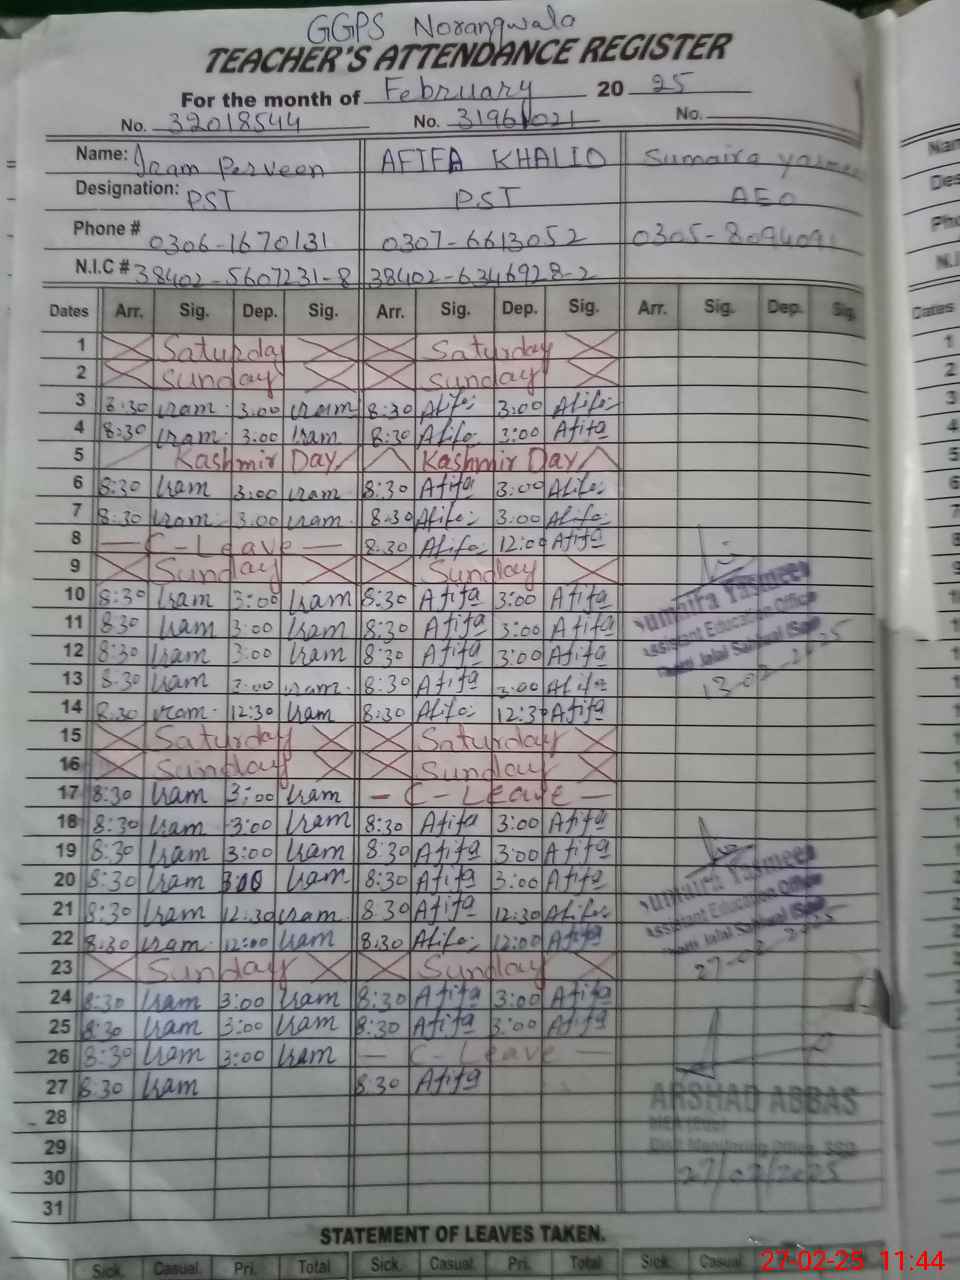 GGPS Norangwala
TEACHER'S ATTENDANCE REGISTER
For the month of February 20 25
No. 32018544 No. 31961021 No.
Name: Iram Perveen AFIFA KHALID Sumaira
Designation: PST PST AEO
Phone # 0306-1670131 0307-6613052 0305-809409
N.I.C # 38402-5607231-8 38402-6346928-2
Dates Arr. Sig. Dep. Sig. Arr. Sig. Dep. Sig. Arr. Sig. Dep. Sig.
1 Saturday Saturday
2 Sunday Sunday
3 8:30 Iram 3:00 Iram 8:30 Afifa 3:00 Afifa
4 8:30 Iram 3:00 Iram 8:30 Afifa 3:00 Afifa
5 Kashmir Day Kashmir Day
6 8:30 Iram 3:00 Iram 8:30 Afifa 3:00 Afifa
7 8:30 Iram 3:00 Iram 8:30 Afifa 3:00 Afifa
8 — C-Leave — 8:30 Afifa 12:00 Afifa
9 Sunday Sunday
10 8:30 Iram 3:00 Iram 8:30 Afifa 3:00 Afifa
11 8:30 Iram 3:00 Iram 8:30 Afifa 3:00 Afifa
12 8:30 Iram 3:00 Iram 8:30 Afifa 3:00 Afifa
13 8:30 Iram 3:00 Iram 8:30 Afifa 3:00 Afifa
14 8:30 Iram 12:30 Iram 8:30 Afifa 12:30 Afifa
Sumaira Yasmeen
Assistant Education Officer
13-02-2025
15 Saturday Saturday
16 Sunday Sunday
17 8:30 Iram 3:00 Iram — C-Leave —
18 8:30 Iram 3:00 Iram 8:30 Afifa 3:00 Afifa
19 8:30 Iram 3:00 Iram 8:30 Afifa 3:00 Afifa
20 8:30 Iram 3:00 Iram 8:30 Afifa 3:00 Afifa
21 8:30 Iram 12:30 Iram 8:30 Afifa 12:30 Afifa
22 8:30 Iram 12:00 Iram 8:30 Afifa 12:00 Afifa
Sumaira Yasmeen
Assistant Education Officer
27-02-2025
23 Sunday Sunday
24 8:30 Iram 3:00 Iram 8:30 Afifa 3:00 Afifa
25 8:30 Iram 3:00 Iram 8:30 Afifa 3:00 Afifa
26 8:30 Iram 3:00 Iram — C-Leave —
27 8:30 Iram 8:30 Afifa
28
29
30
31
ARSHAD ABBAS
27/02/2025
STATEMENT OF LEAVES TAKEN.
Sick. Casual. Pri. Total Sick. Casual. Pri. Total Sick. Casual
27-02-25 11:44